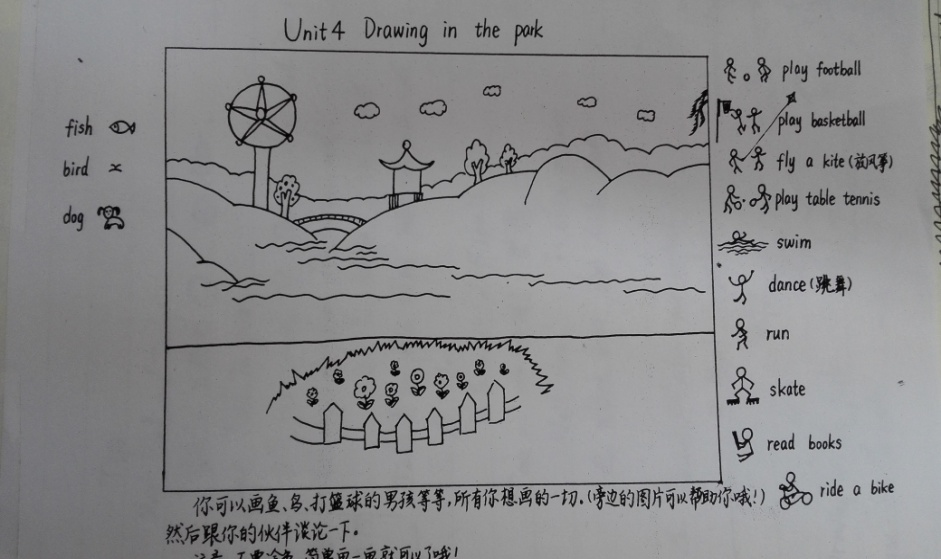 Unit 4 Drawing in the park
fish
bird
dog
play football
play basketball
fly a kite (放风筝)
play table tennis
swim
dance (跳舞)
run
skate
read books
ride a bike
你可以画鱼、鸟、打篮球的男孩等等,所有你想画的一切。(旁边的图片可以帮助你哦!)
然后跟你的伙伴谈论一下。
注意:不要涂色,简单画一画就可以了哦!